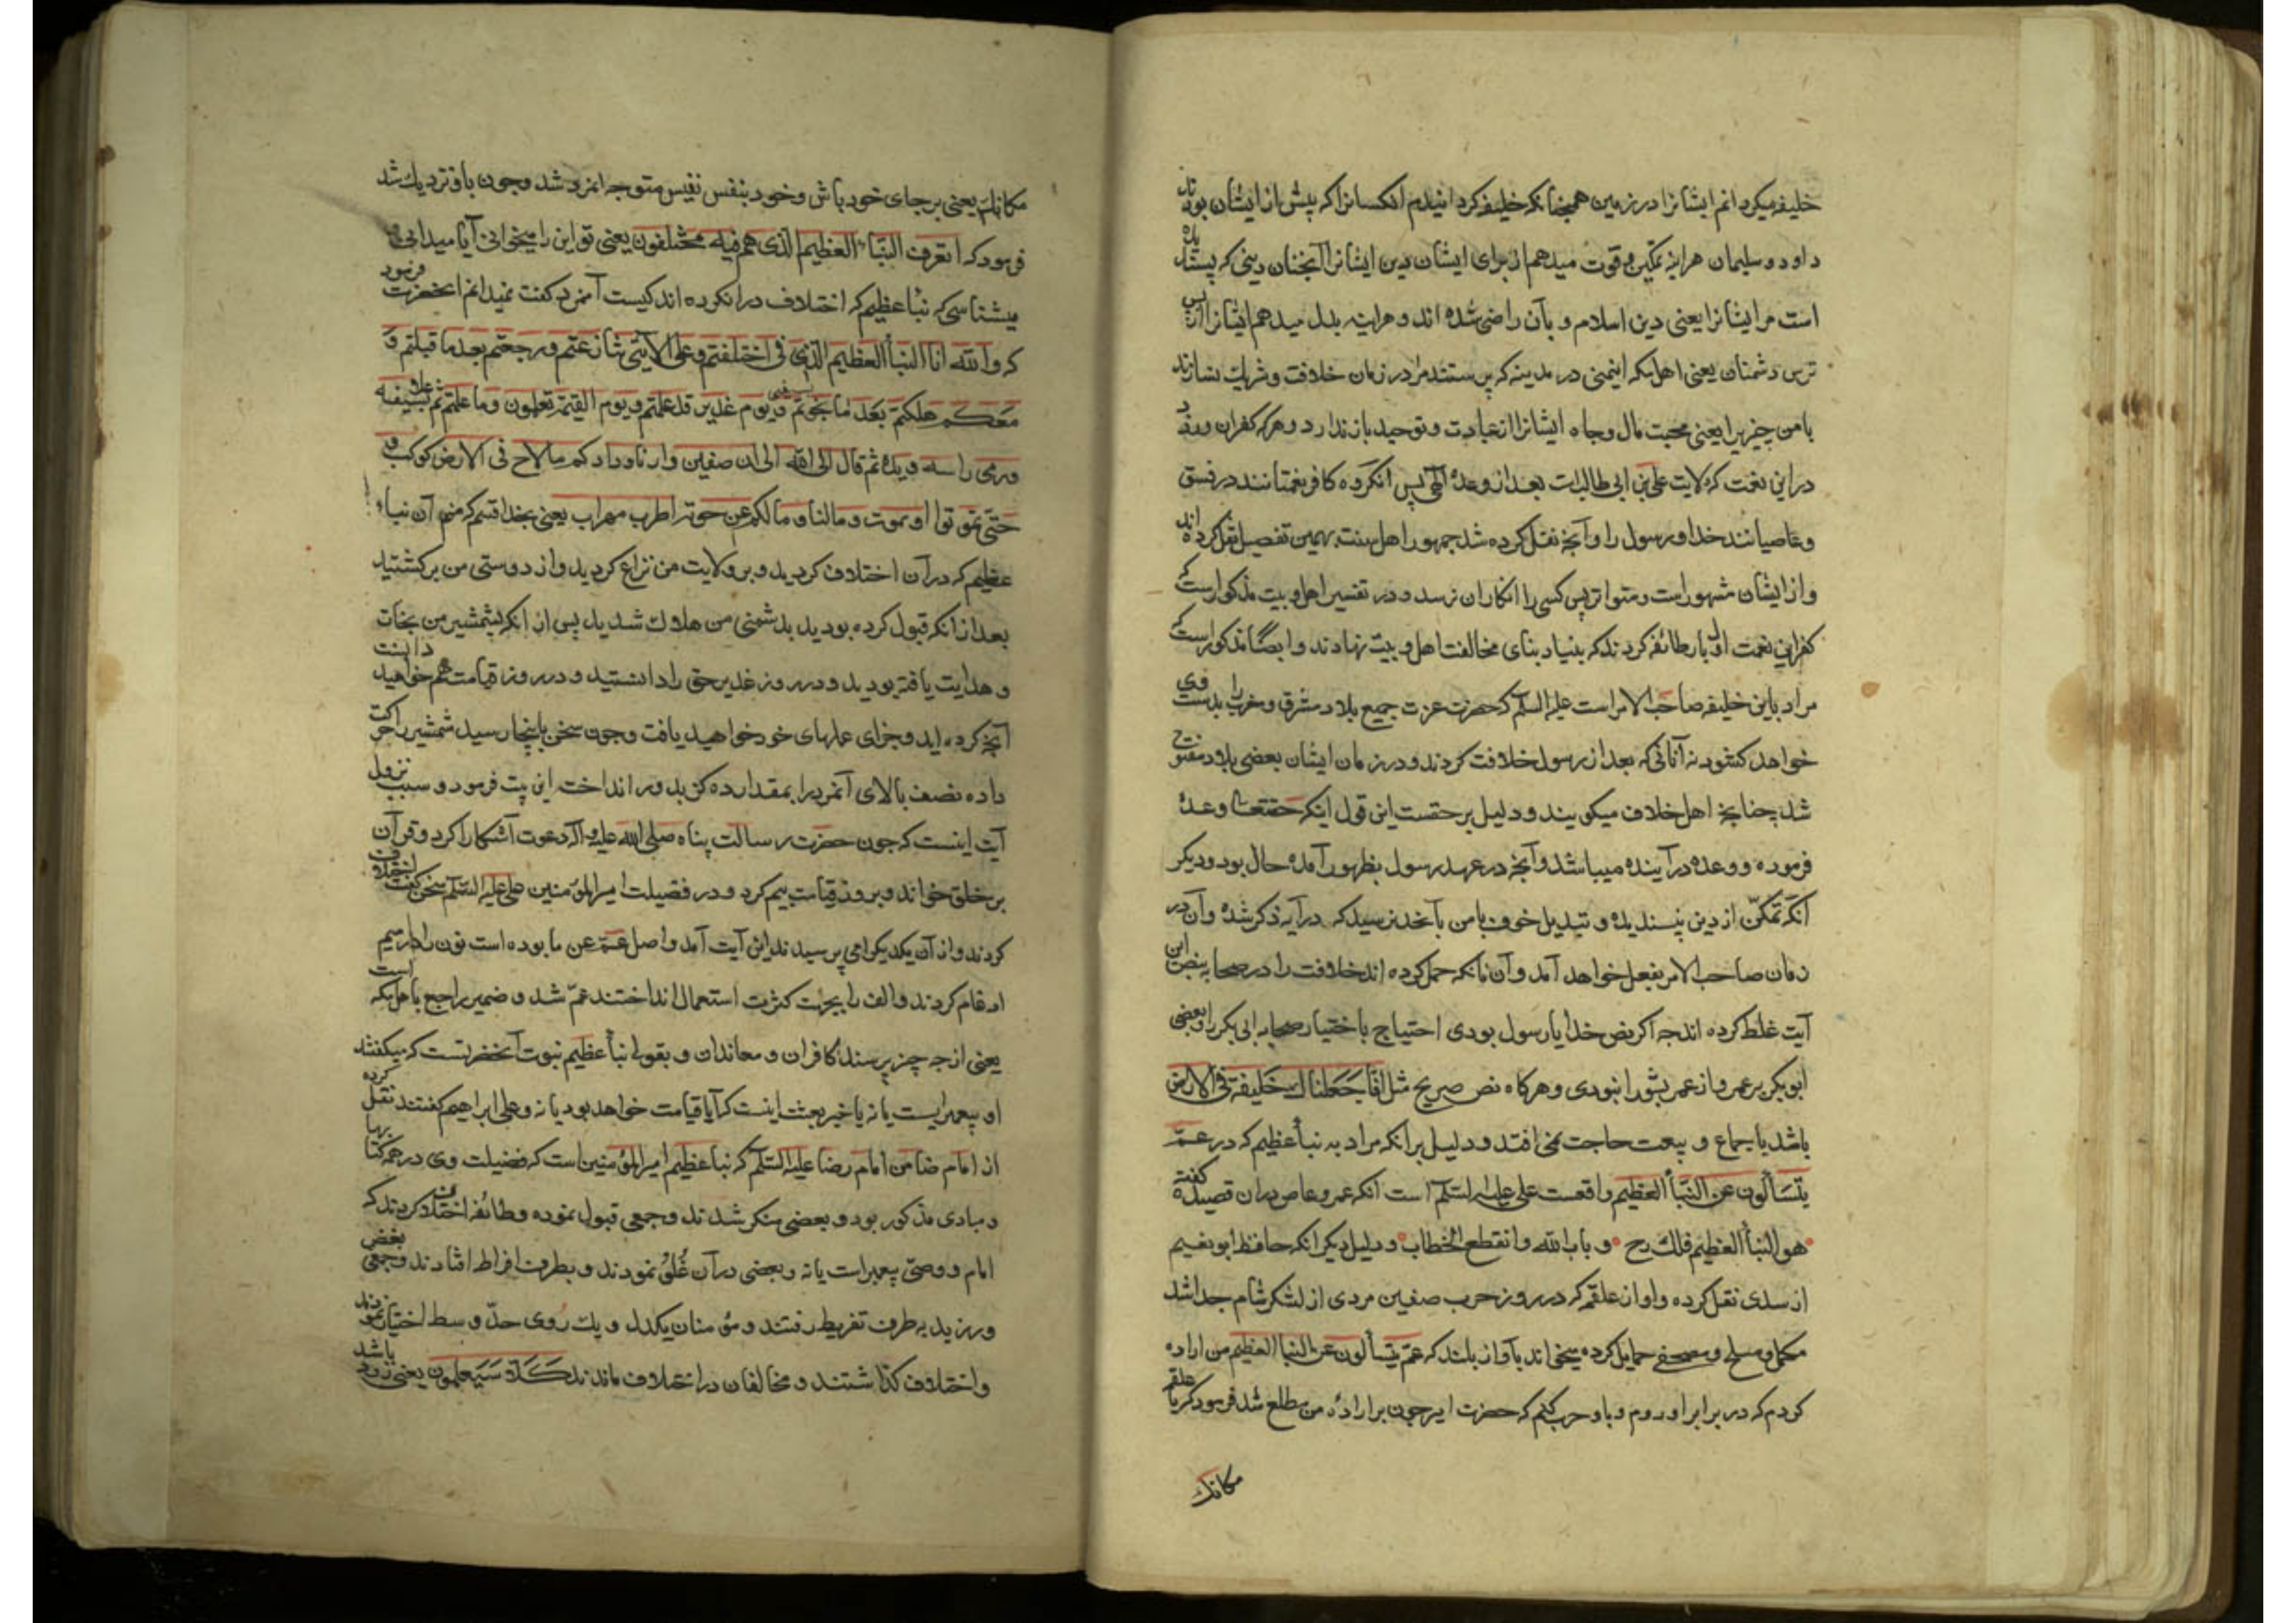 خلیفه میکردانم ایشانرا در زمین همچنانکه خلیفه کردانیدم انکسانرا که پیش از ایشان بودند
داود و سلیمان هراینه تمکین و قوت میدهم از برای ایشان دین ایشانرا آنچنان دینی که پسندیده
است مر ایشانرا یعنی دین اسلام و بآن راضی شده اند و هراینه بدل میدهم ایشانرا از پس
ترس دشمنان یعنی اهل مکه ایمنی در مدینه که پرستند مرا در زمان خلافت و شریک نسازند
با من چیزیرا یعنی محبت مال و جاه ایشانرا از عبادت و توحید باز ندارد و هر که کفران ورزد
درین نعمت که ولایت علی بن ابی طالبست بعد از وعدهٔ الهی پس انکروه کافر نعمتانند در فسق
و عاصیانند خدا و رسول را و آنچه نقل کرده شد جمهور اهل سنت بهمین تفصیل نقل کرده اند
و از ایشان مشهور است و متواتر پس کسی را انکار ان نرسد و در تفسیر اهل بیت مذکور است که
کفران نعمت اول بار طائفه کردند که بنیاد بنای مخالفت اهل بیت نهادند و ایضا مذکور است که
مراد باین خلیفه صاحب الامر است علیه السلم که حضرت عزت جمیع بلاد مشرق و مغرب را بدست وی
خواهد کشود نه آنانی که بعد از رسول خلافت کردند و در زمان ایشان بعضی بلاد مفتوح
شد چنانچه اهل خلاف میکویند و دلیل بر حقیت این قول اینکه حقتعا وعدهٔ
فرموده و وعده در آینده میباشد و آنچه در عهد رسول بظهور آمده حال بود و دیکر
آنکه تمکن از دین پسندیده و تبدیل خوف بامن بآنحد نرسید که در آیه ذکر شده و آن در
زمان صاحب الامر بفعل خواهد آمد و آن نانکه حمل کرده اند خلافت را در صحابه بنص این
آیت غلط کرده اند چه اکر نص خدا یا رسول بودی احتیاج باختیار صحابه ابی بکر را و بعضی
ابوبکر بر عمر و از عمر بشورا نبودی و هرکاه نص صریح مثل انا جعلناك خلیفة فی الارض
باشد باجماع و بیعت حاجت نمی افتد و دلیل بر انکه مراد به نبأ عظیم که در عمّ
یتسألون عن النبأ العظیم واقعست علی علیه السلم است آنکه عمرو عاص در ان قصیده کفته
هو النبأ العظیم و فلك نوح و باب الله و انقطع الخطاب و دلیل دیکر انکه حافظ ابو نعیم
از سدی نقل کرده و او از علقمه که در روز حرب صفین مردی از لشکر شام جدا شد
مکمل و مسلح و مصحفی حمایل کرده میخواند بآواز بلند که عم یتسألون عن النبا العظیم من اراده
کردم که در برابر او روم و با و حرب کنم که حضرت امیر چون بر ارادهٔ من مطلع شد فرمود که یا علقمه
مکانك
مکانك یعنی بر جای خود باش و خود بنفس نفیس متوجه انمرد شد و چون باو نزدیك شد
فرمود که اتعرف النبأ العظیم الذی هم فیه مختلفون یعنی تو این را میخوانی آیا میدانی و
میشناسی که نبأ عظیم که اختلاف در ان کرده اند کیست آنمرد کفت نمیدانم انحضرت فرمود
که والله انا النبأ العظیم الذی فی اختلفتم وعلی ولایتی تنازعتم ورجعتم بعد ما قبلتم و
معکم هلکتم بعد ما نجوتم ویوم غدیر قد علمتم ویوم القیمة تعلمون وما علمتم ثم علا بسیفه
ورمی راسه ویده ثم قال الی الله الی ان صفین وارنا وداركم ما لاح فی الارض کوکب و
حتی تموتوا او نموت ومالنا ومالکم عن حومة اطرب مهراب یعنی بخدا قسم که منم آن نبأ
عظیم که در آن اختلاف کردید و بر ولایت من نزاع کردید و از دوستی من برکشتید
بعد از انکه قبول کرده بودید بدشمنی من هلاك شدید پس از انکه بشمشیر من نجات
و هدایت یافته بودید و در روز غدیر حق را دانستید و در روز قیامت هم خواهید دانست
آنچه کرده اید و جزای عملهای خود خواهید یافت و چون سخن باینجا رسید شمشیر را حرکت
داده نصف بالای آنمرد را بمقدار ده کز بدور انداخت این بیت فرمود و سبب نزول
آیت اینست که چون حضرت رسالت پناه صلی الله علیه وآله دعوت آشکارا کرد و قرآن
بر خلق خواند و بروز قیامت بیم کرد و در فضیلت امیر المؤمنین علی علیه السلم سخن کفت اختلاف
کردند و از آن یکدیکر می پرسیدند این آیت آمد و اصل عم عن ما بوده است نون را در میم
ادغام کردند و الف را بجهت کثرت استعمال انداختند عمّ شد و ضمیر راجع باهل مکه است
یعنی از چه چیز پرسند کافران و معاندان و بقولی نبأ عظیم نبوت آنحضرتست که میکفتند
او پیغمبر است یا نه یا خبر بعثت اینست که آیا قیامت خواهد بود یا نه و علی ابراهیم کفتند نقل کرده
از امام ضامن امام رضا علیه السلم که نبأ عظیم امیر المؤمنین است که فضیلت وی در همه کتابها
و مبادی مذکور بود و بعضی منکر شدند و جمعی قبول نموده و طائفه اختلاف کردند که
امام و وصیّ پیغمبر است یا نه و بعضی در آن غلوّ نمودند و بطرف افراط افتادند و جمعی بغض
ورزیده بطرف تفریط رفتند و مؤمنان یکدل و یك روی حدّ وسط اختیار نمودند
و اختلاف کذاشتند و مخالفان در اختلاف ماندند کلا سیعلمون یعنی زود باشد